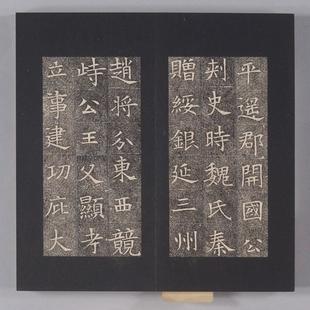 平遥郡開國公
刺史時魏氏秦
贈綏銀延三州
趙将分東西競
峙公王父顯考
立事建功庇大